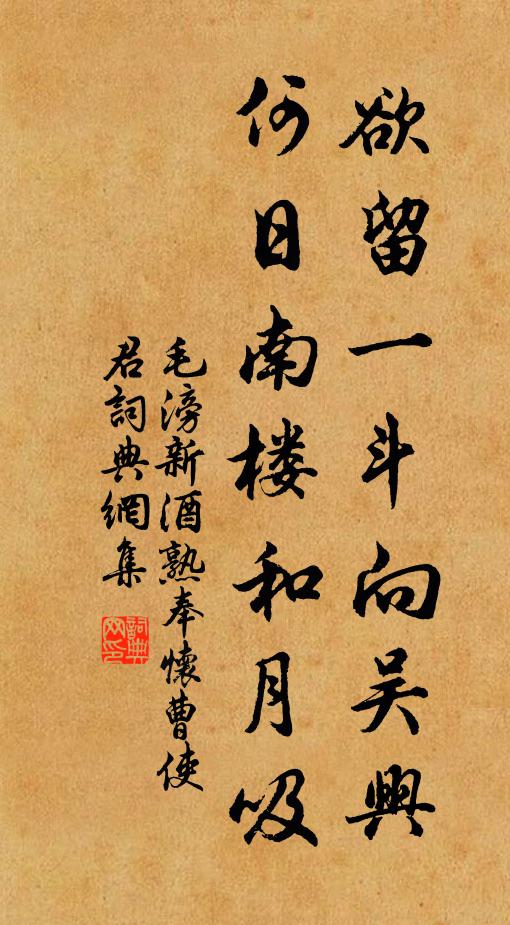 欲留一斗向吴興
何日南楼和月吸
毛滂新酒熟奉懷曹使
君詞典網集
詞典
网印